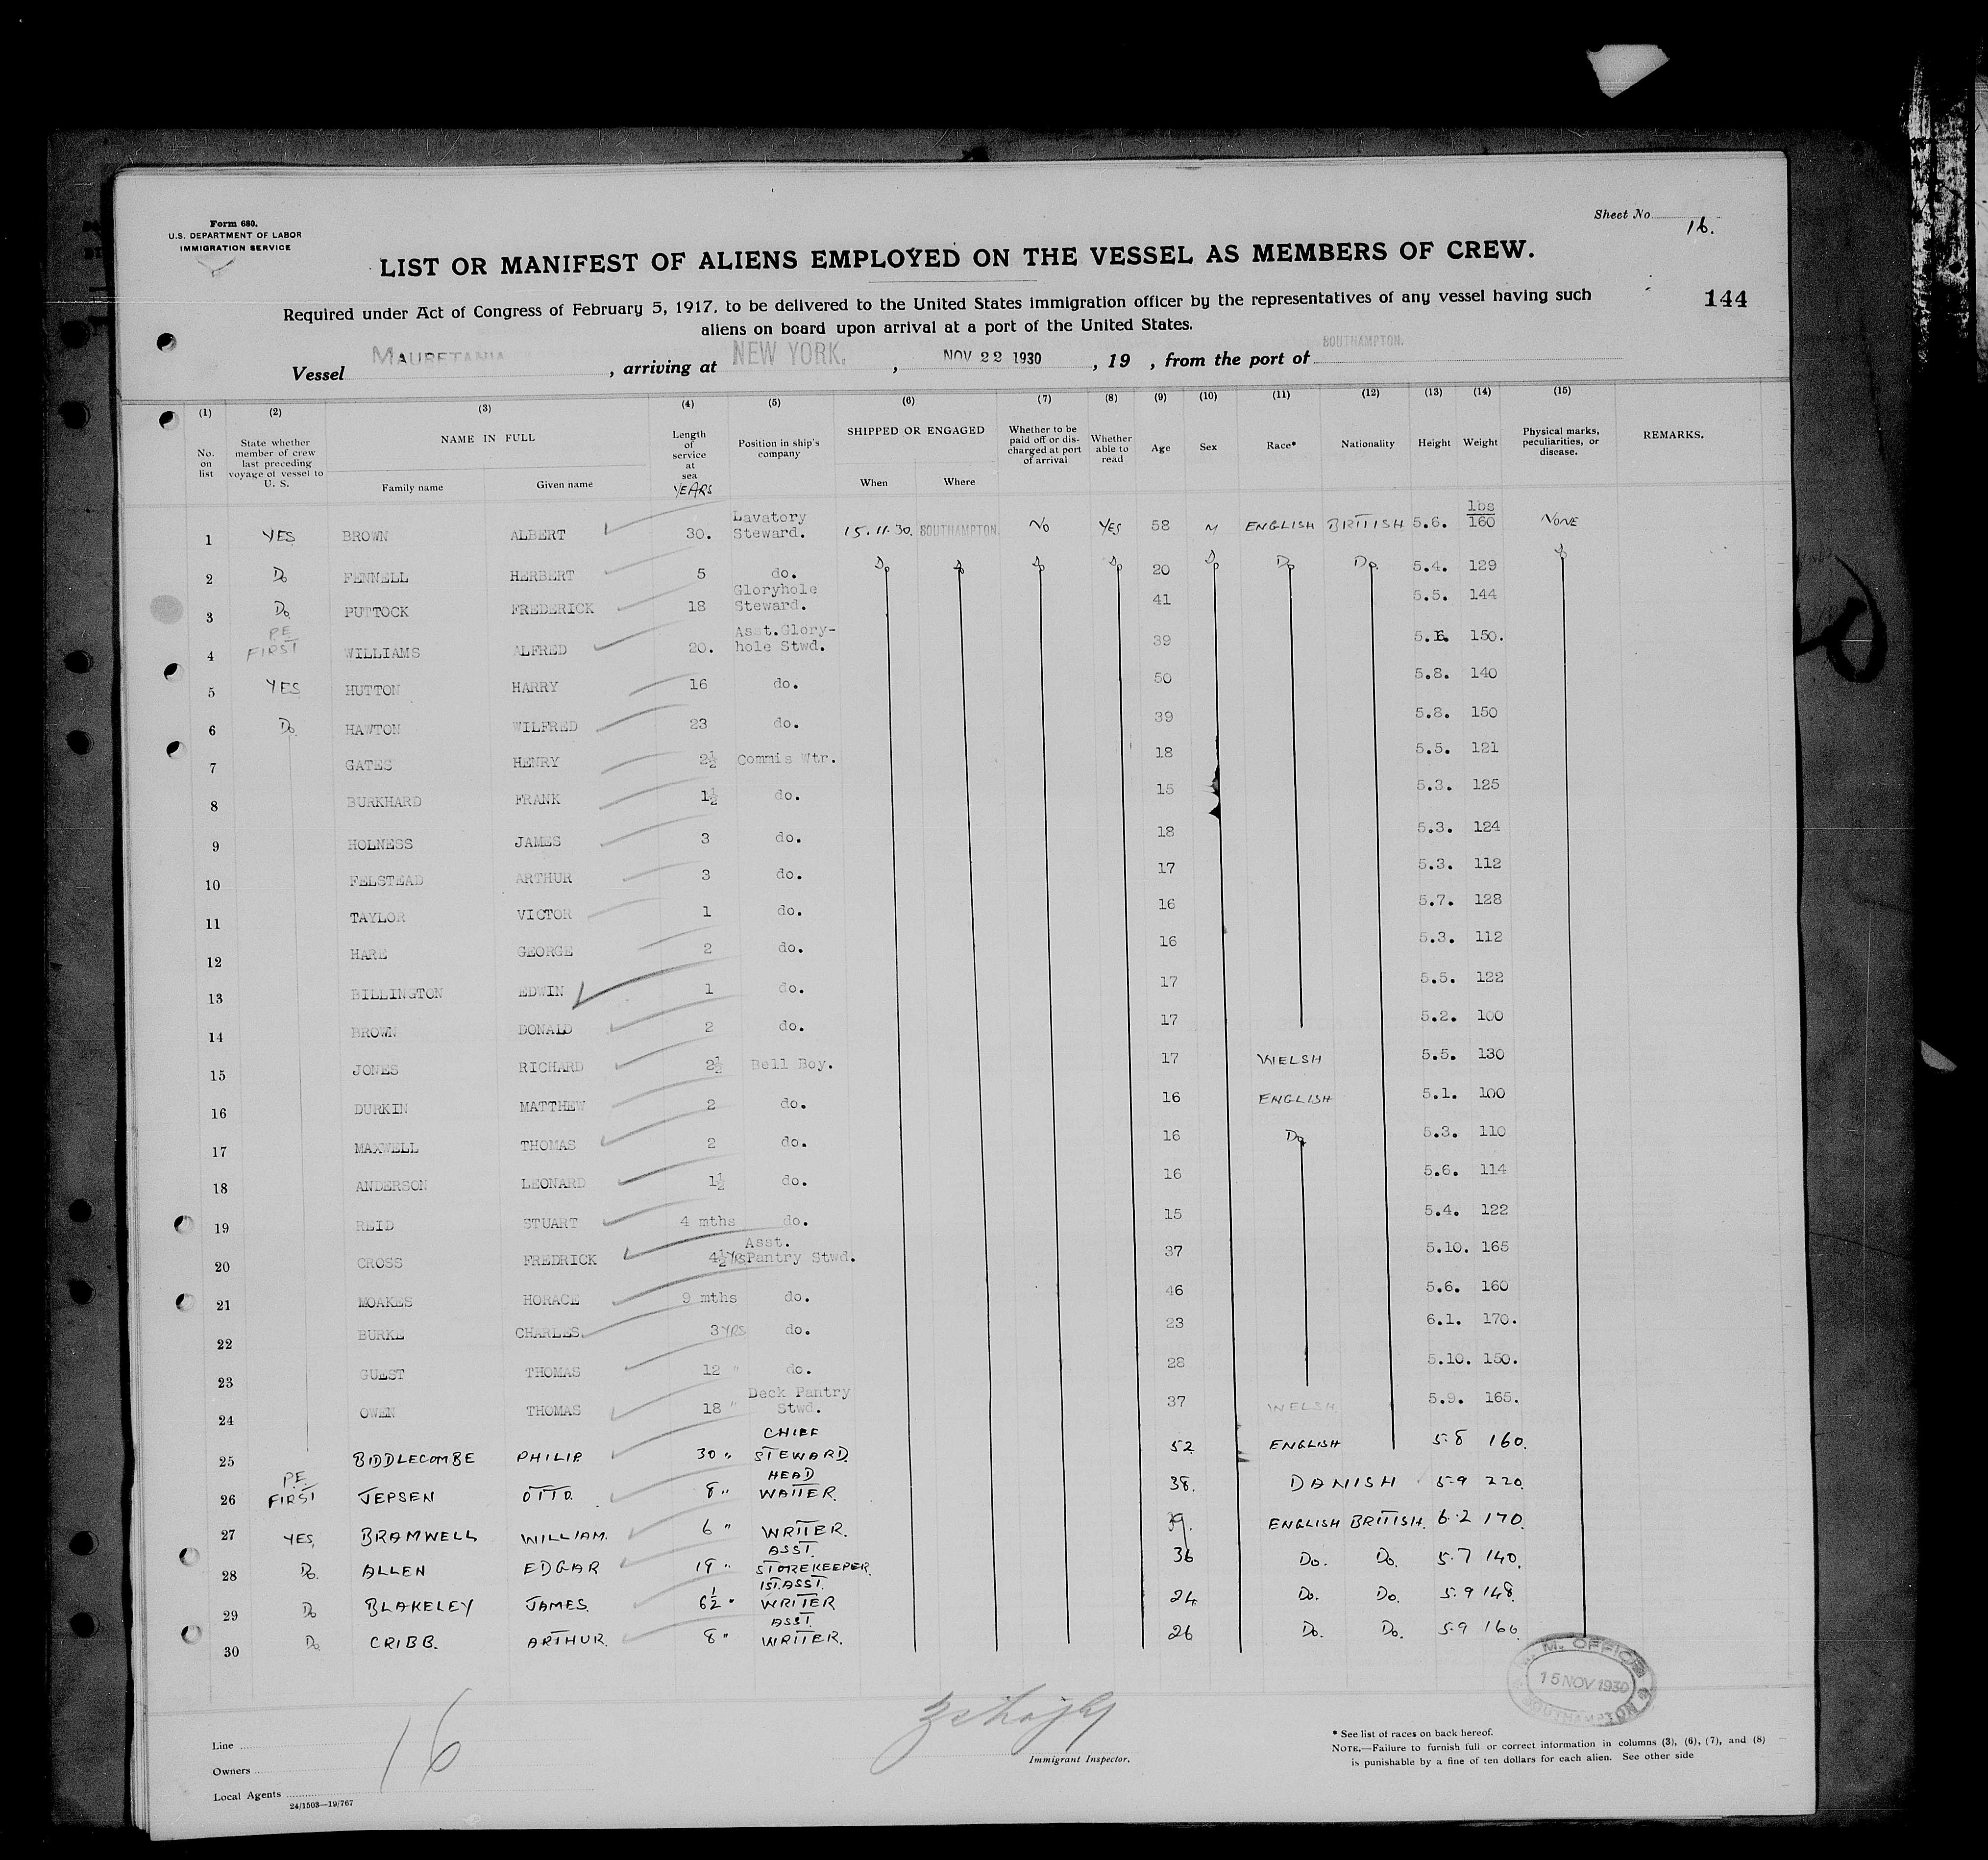 Form 680.
U.S. DEPARTMENT OF LABOR
IMMIGRATION SERVICE
Sheet No. 16.
LIST OR MANIFEST OF ALIENS EMPLOYED ON THE VESSEL AS MEMBERS OF CREW.
144
Required under Act of Congress of February 5, 1917, to be delivered to the United States immigration officer by the representatives of any vessel having such
aliens on board upon arrival at a port of the United States.
Vessel MAURETANIA, arriving at NEW YORK., NOV 22 1930, 19 , from the port of SOUTHAMPTON.
(1) (2) (3) (4) (5) (6) (7) (8) (9) (10) (11) (12) (13) (14) (15)
No. on list State whether member of crew last preceding voyage of vessel to U. S. NAME IN FULL Family name Given name Length of service at sea YEARS Position in ship's company SHIPPED OR ENGAGED When Where Whether to be paid off or discharged at port of arrival Whether able to read Age Sex Race* Nationality Height Weight Physical marks, peculiarities, or disease. REMARKS.
1 YES BROWN ALBERT 30. Lavatory Steward. 15.11.30. SOUTHAMPTON. NO YES 58 M ENGLISH BRITISH 5.6. lbs 160 NONE
2 Do FENNELL HERBERT 5 do. Do Do Do Do 20 Do Do Do. 5.4. 129
3 Do. PUTTOCK FREDERICK 18 Gloryhole Steward. 41 5.5. 144
4 PE FIRST WILLIAMS ALFRED 20. Asst.Glory-hole Stwd. 39 150.
5 YES HUTTON HARRY 16 do. 50 5.8. 140
6 Do. HAWTON WILFRED 23 do. 39 5.8. 150
7 GATES HENRY 2½ Commis Wtr. 18 5.5. 121
8 BURKHARD FRANK 1½ do. 15 5.3. 125
9 HOLNESS JAMES 3 do. 18 5.3. 124
10 FELSTEAD ARTHUR 3 do. 17 5.3. 112
11 TAYLOR VICTOR 1 do. 16 5.7. 128
12 HARE GEORGE 2 do. 16 5.3. 112
13 BILLINGTON EDWIN 1 do. 17 5.5. 122
14 BROWN DONALD 2 do. 17 5.2. 100
15 JONES RICHARD 2½ Bell Boy. 17 WELSH 5.5. 130
16 DURKIN MATTHEW 2 do. 16 ENGLISH 5.1. 100
17 MAXWELL THOMAS 2 do. 16 Do 5.3. 110
18 ANDERSON LEONARD 1½ do. 16 5.6. 114
19 REID STUART 4 mths do. 15 5.4. 122
20 CROSS FREDRICK 4½ YRS Asst. Pantry Stwd. 37 5.10. 165
21 MOAKES HORACE 9 mths do. 46 5.6. 160
22 BURKE CHARLES. 3 YRS do. 23 6.1. 170.
23 GUEST THOMAS 12 " do. 28 5.10. 150.
24 OWEN THOMAS 18 " Deck Pantry Stwd. 37 WELSH 5.9. 165.
25 BIDDLECOMBE PHILIP. 30 " CHIEF STEWARD. 52 ENGLISH 5.8 160.
26 PE FIRST JEPSEN OTTO. 8 " HEAD WAITER. 38. DANISH 5-9 220.
27 YES, BRAMWELL WILLIAM. 6 " WRITER. 39. ENGLISH BRITISH. 6.2 170.
28 Do. ALLEN EDGAR 19 " ASST. STOREKEEPER. 36 Do. Do. 5.7 140.
29 Do BLAKELEY JAMES. 6½ " 1ST. ASST. WRITER 24 Do. Do. 5.9 148.
30 Do CRIBB. ARTHUR. 8 " ASST. WRITER. 26 Do. Do. 5.9 160.
M. OFFICE
15 NOV 1930
SOUTHAMPTON
16
Line
Owners
Local Agents
24/1503—19/767
Immigrant Inspector.
* See list of races on back hereof.
NOTE.—Failure to furnish full or correct information in columns (3), (6), (7), and (8)
is punishable by a fine of ten dollars for each alien. See other side